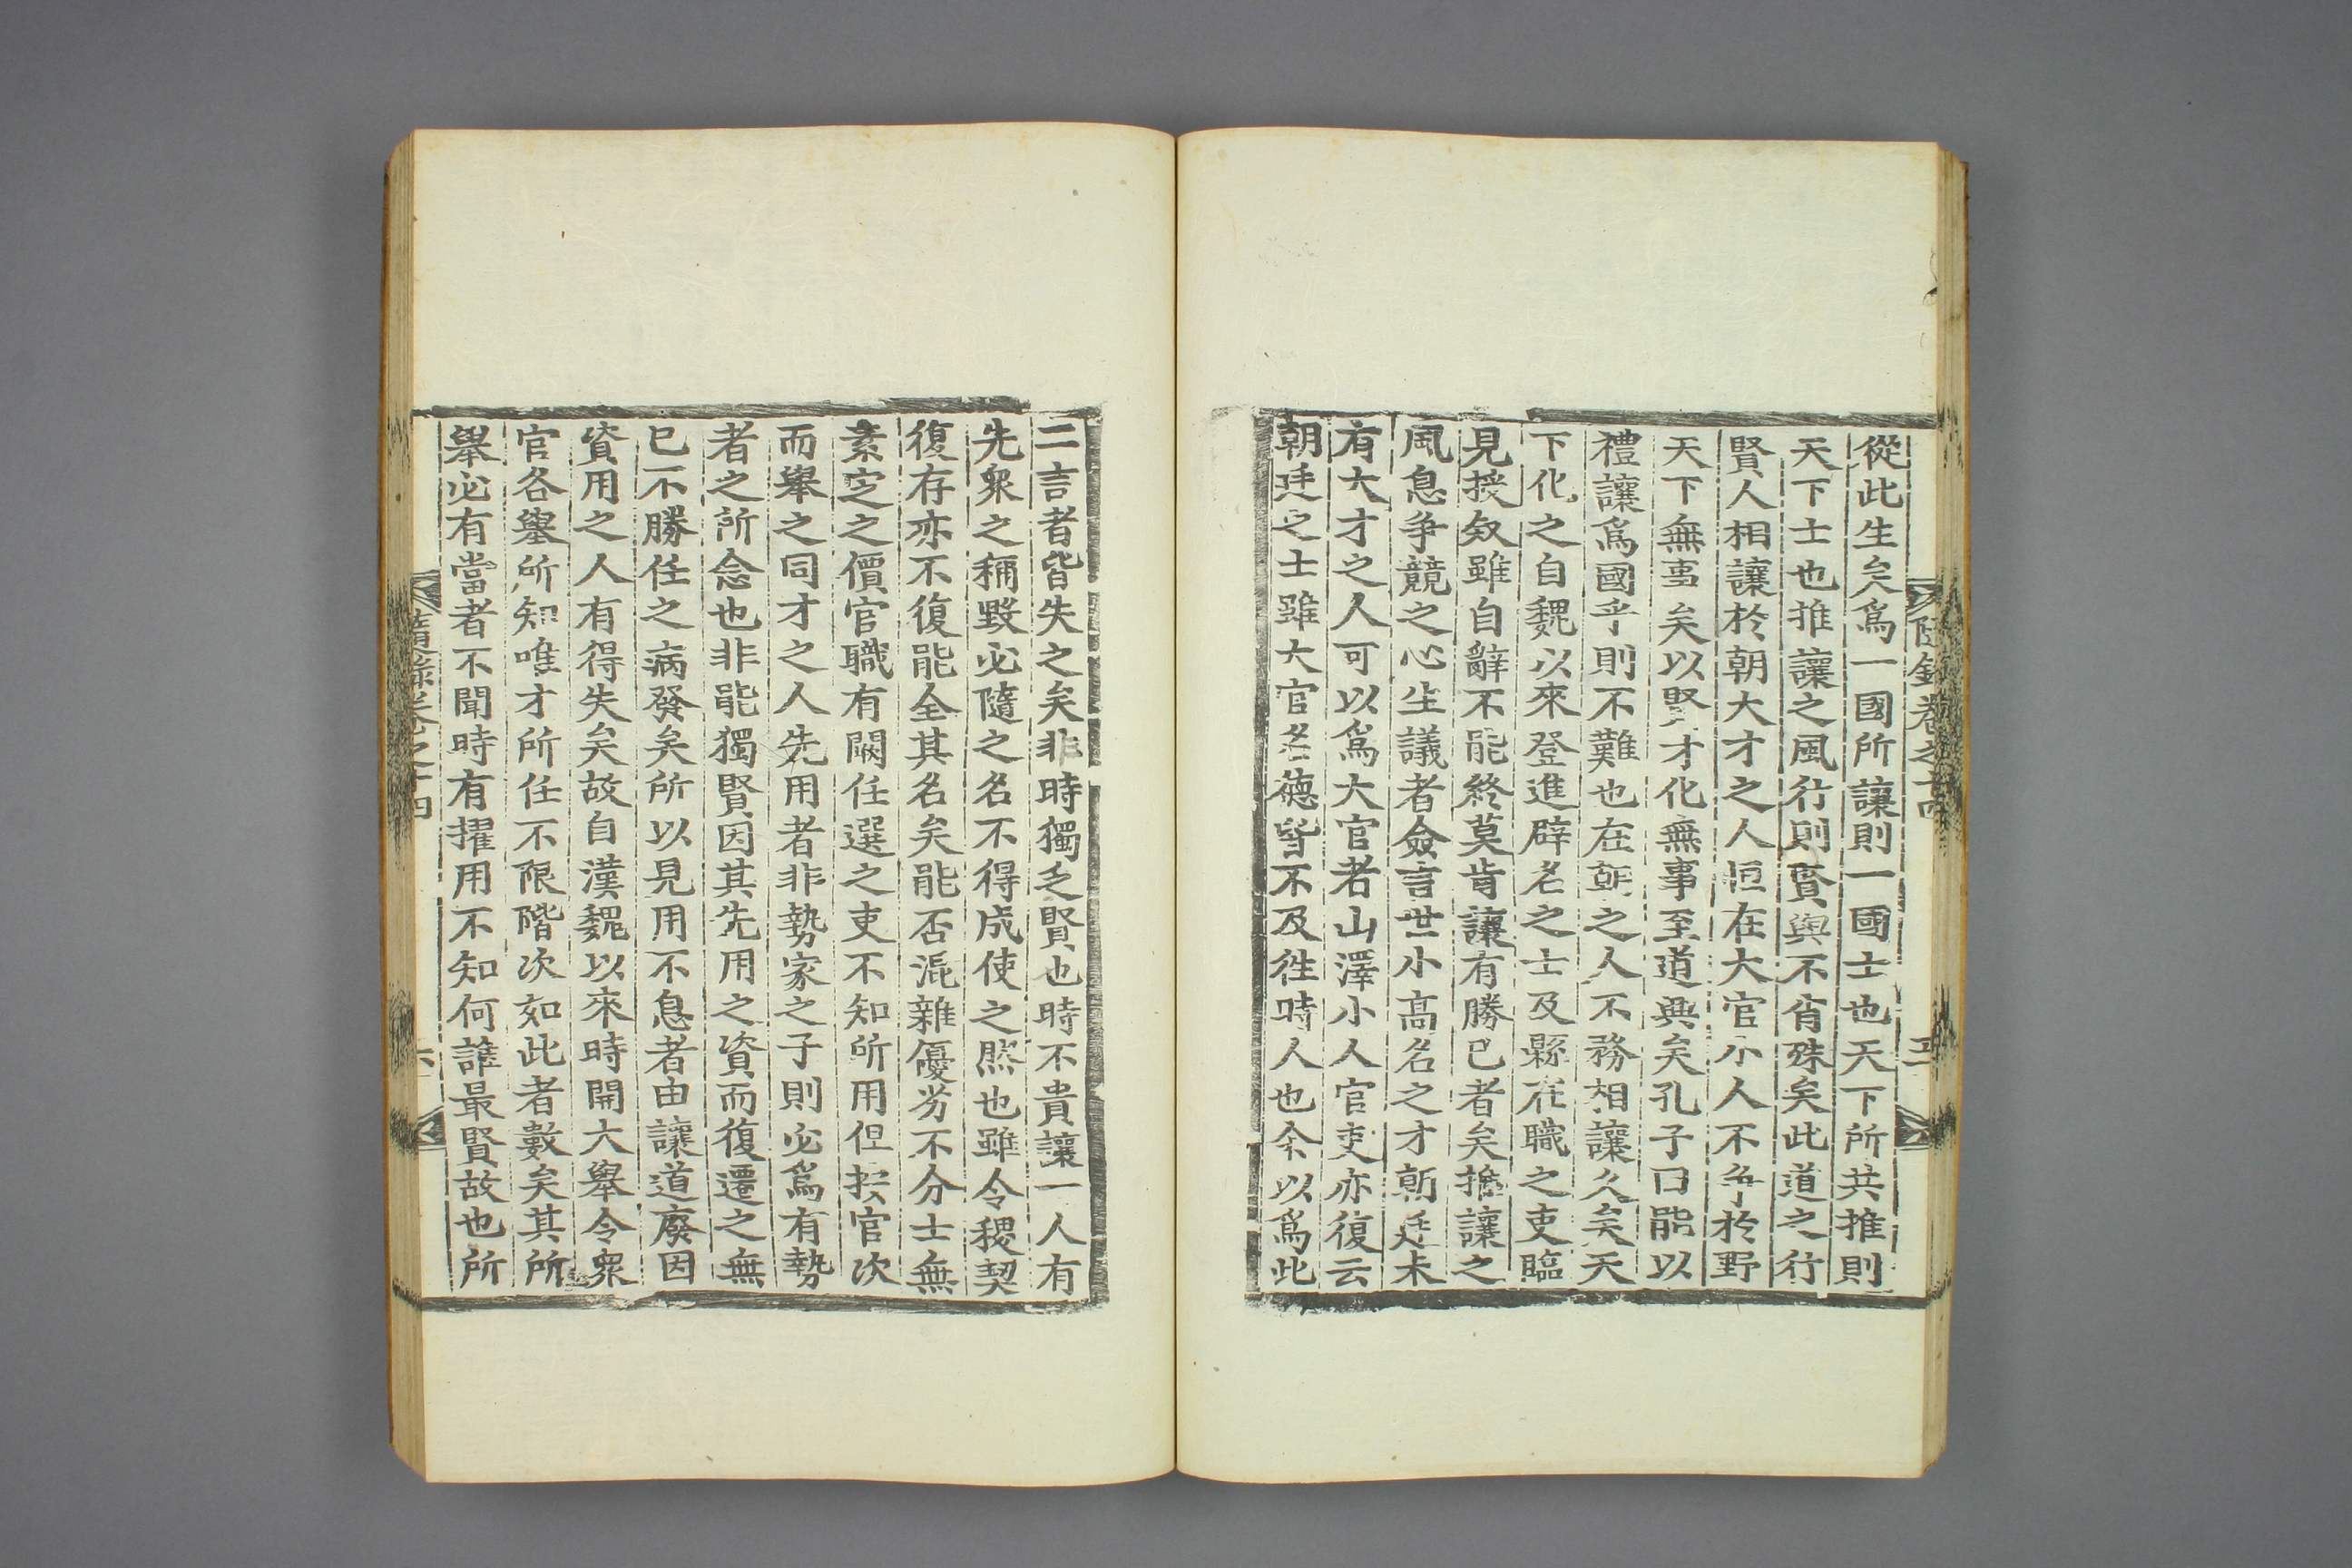 隨錄卷之十四
五
從此生矣爲一國所讓則一國士也天下所共推則
天下士也推讓之風行則賢與不肖殊矣此道之行
賢人相讓於朝大才之人恒在大官小人不爭於野
天下無事矣以賢才化無事至道興矣孔子曰能以
禮讓爲國乎則不難也在朝之人不務相讓久矣天
下化之自魏以來登進辟名之士及縣在職之吏臨
見授敘雖自辭不能終莫肯讓有勝己者矣擔讓之
風息争競之心生議者僉言世小高名之才朝廷未
有大才之人可以爲大官者山澤小人官吏亦復云
朝廷之士雖大官名德皆不及徃時人也余以爲此
二言者皆失之矣非時獨乏賢也時不貴讓一人有
先衆之稱毀必隨之名不得成使之然也雖令稷契
復存亦不復能全其名矣能否混雜優劣不分士無
素定之價官職有闕任選之吏不知所用但按官次
而舉之同才之人先用者非勢家之子則必爲有勢
者之所念也非能獨賢因其先用之資而復遷之無
已不勝任之病發矣所以見用不息者由讓道廢因
資用之人有得失矣故自漢魏以來時開大舉令衆
官各舉所知唯才所任不限階次如此者數矣其所
舉必有當者不聞時有擢用不知何誰最賢故也所
錄卷之十四
六